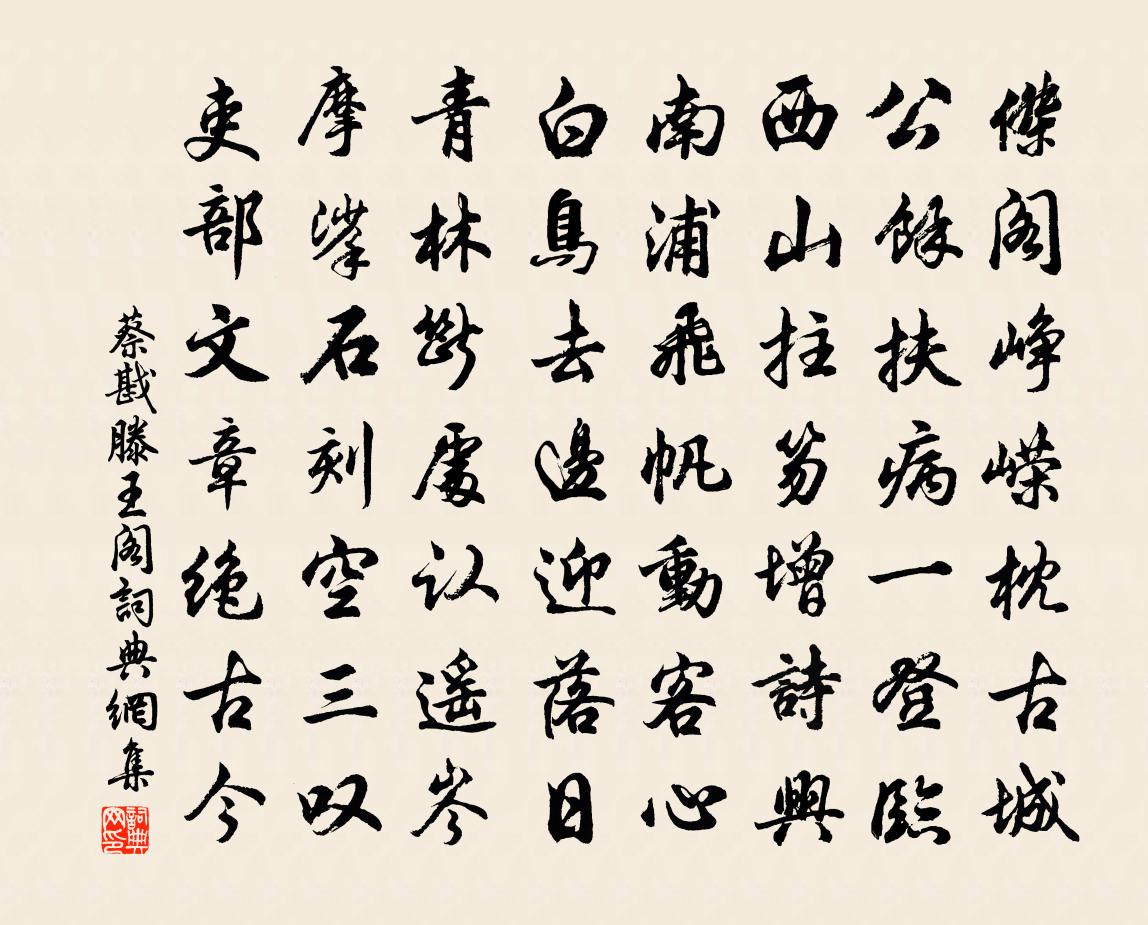 傑阁峥嵘枕古城
公餘扶病一登臨
西山拄笏增詩興
南浦飛帆動客心
白鳥去邊迎落日
青林斷處认遥岑
摩挲石刻空三叹
吏部文章绝古今
蔡戡滕王阁詞典網集
詞典网印